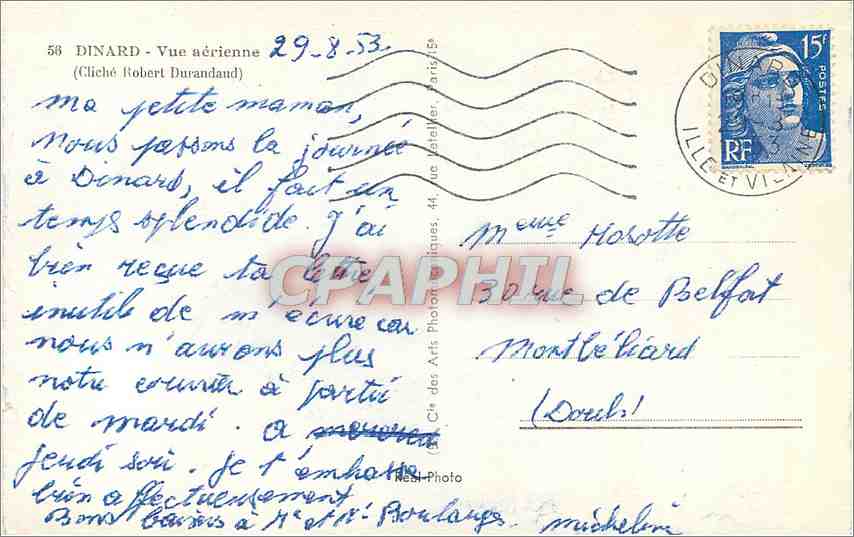 56 DINARD - Vue aérienne 29-8-53.
(Cliché Robert Durandaud)
Ma petite maman,
Nous passons la journée
à Dinard, il fait un
temps splendide. J'ai
bien reçue ta lettre
inutile de m'écrire car
nous n'aurons plus
notre courrier à partir
de mardi. a
jeudi soir. Je t'embrasse
bien affectueusement
Bons baisers à Me et Mr Boulange. Micheline
Cie des Arts Photomécaniques, 44, rue Letellier, Paris-15e
Real-Photo
15F
POSTES
RF
DINARD
ILLE ET VILAINE
Meme Mosotte
30 rue de Belfort
Montbéliard
(Doubs)
CPAPHIL